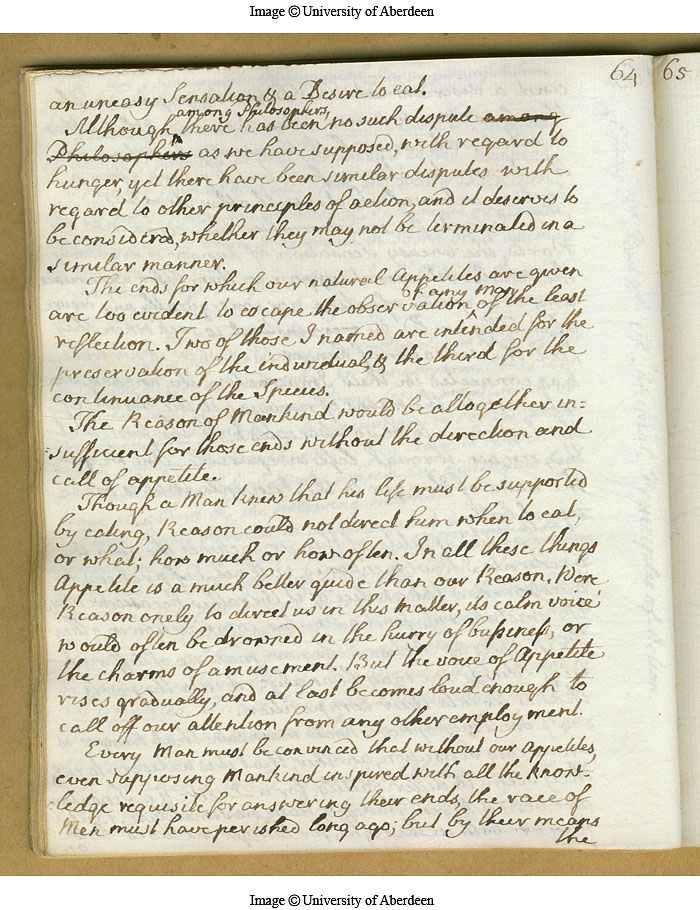 Image © University of Aberdeen
64
65
an uneasy Sensation & a Desire to eat.
among Philosophers,
Although there has been no such dispute among
Philosophers as we have supposed, with regard to
hunger, yet there have been similar disputes with
regard to other principles of action, and it deserves to
be considered, whether they may not be terminated in a
similar manner.
The ends for which our natural Appetites are given
of any Man
are too evident to escape the observation of the least
reflection. Two of those I named are intended for the
preservation of the individual, & the third for the
continuance of the Species.
The Reason of Mankind would be altogether in=
=sufficient for those ends without the direction and
call of appetite.
Though a Man knew that his life must be supported
by eating, Reason could not direct him when to eat,
or what; how much or how often. In all these things
Appetite is a much better guide than our Reason. Were
Reason onely to direct us in this matter, its calm voice
would often be drowned in the hurry of business, or
the charms of amusement. But the voice of Appetite
rises gradually, and at last becomes loud enough to
call off our attention from any other employment.
Every Man must be convinced that without our appetites,
even supposing Mankind inspired with all the know=
=ledge requisite for answering their ends, the race of
Men must have perished long ago; but by their means
the
Image © University of Aberdeen